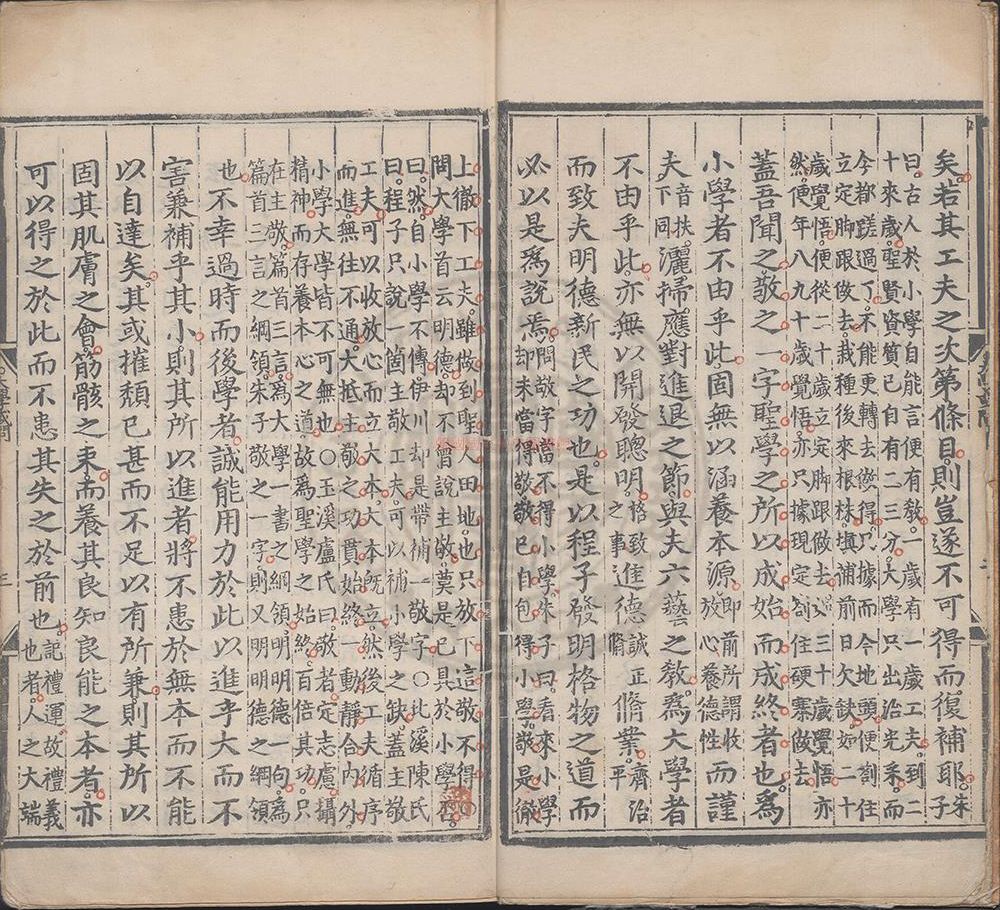 矣若其工夫之次第條目則豈遂不可得而復補耶朱子
曰古人於小學自能言便有教一歲有一歲工夫到二
十來歲聖賢資質已自有二三分大學只出治光采而
今都蹉過了不能更轉去做得只據而今地頭便劄住
立定脚跟做去栽種後來根株塡補前日欠缺如二十
歲覺悟便從二十歲立定脚跟做去三十歲覺悟亦
然便年八九十歲覺悟亦只據現定劄住硬寨做去
蓋吾聞之敬之一字聖學之所以成始而成終者也爲
小學者不由乎此固無以涵養本源即前所謂收放心養德性而謹
夫音扶下同灑掃應對進退之節與夫六藝之教爲大學者
不由乎此亦無以開發聰明格致之事進德誠正脩業齊治平
而致夫明德新民之功也是以程子發明格物之道而
必以是爲說焉問敬字當不得小學朱子曰看來小學却未當得敬敬已自包得小學敬是徹
上徹下工夫雖做到聖人田地也只放下這敬不得
問大學首云明德却不曾說主敬莫是已具於小學否
曰然自小學不傳伊川却是帶補一敬字○北溪陳氏
曰程子只說一箇主敬工夫可以補小學之缺蓋主敬
工夫可以收放心而立大本大本旣立然後工夫循序
而進無往不通大抵主敬之功貫始終一動靜合內外
小學大學皆不可無也○玉溪盧氏曰敬者定志慮攝
精神而存養本心之道故爲聖學之始終百倍其功只
在主敬篇首三言爲大學一書之綱領明明德一句爲
篇首三言之綱領朱子敬之一字則又明明德之綱領
也不幸過時而後學者誠能用力於此以進乎大而不
害兼補乎其小則其所以進者將不患於無本而不能
以自達矣其或摧頹已甚而不足以有所兼則其所以
固其肌膚之會筋骸之束而養其良知良能之本者亦
可以得之於此而不患其失之於前也記禮運故禮義也者人之大端